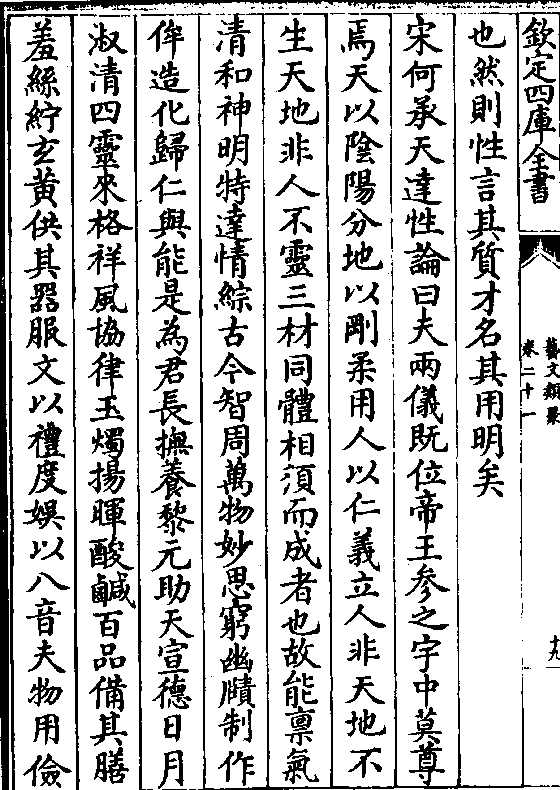 欽定四庫全書
藝文類聚
卷二十一
十九
也然則性言其質才名其用明矣
宋何承天達性論曰夫兩儀既位帝王參之宇中莫尊
焉天以陰陽分地以剛柔用人以仁義立人非天地不
生天地非人不靈三材同體相湏而成者也故能禀氣
清和神明特達情綜古今智周萬物妙思窮幽賾制作
侔造化歸仁與能是為君長撫養黎元助天宣德日月
淑清四靈來格祥風協律玉燭揚暉酸鹹百品備其膳
羞絲紵玄黃供其器服文以禮度娛以八音夫物用儉